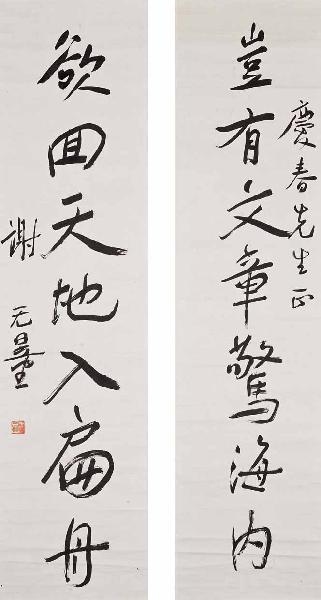 慶春先生正
豈有文章驚海内
欲回天地入扁舟
謝无量